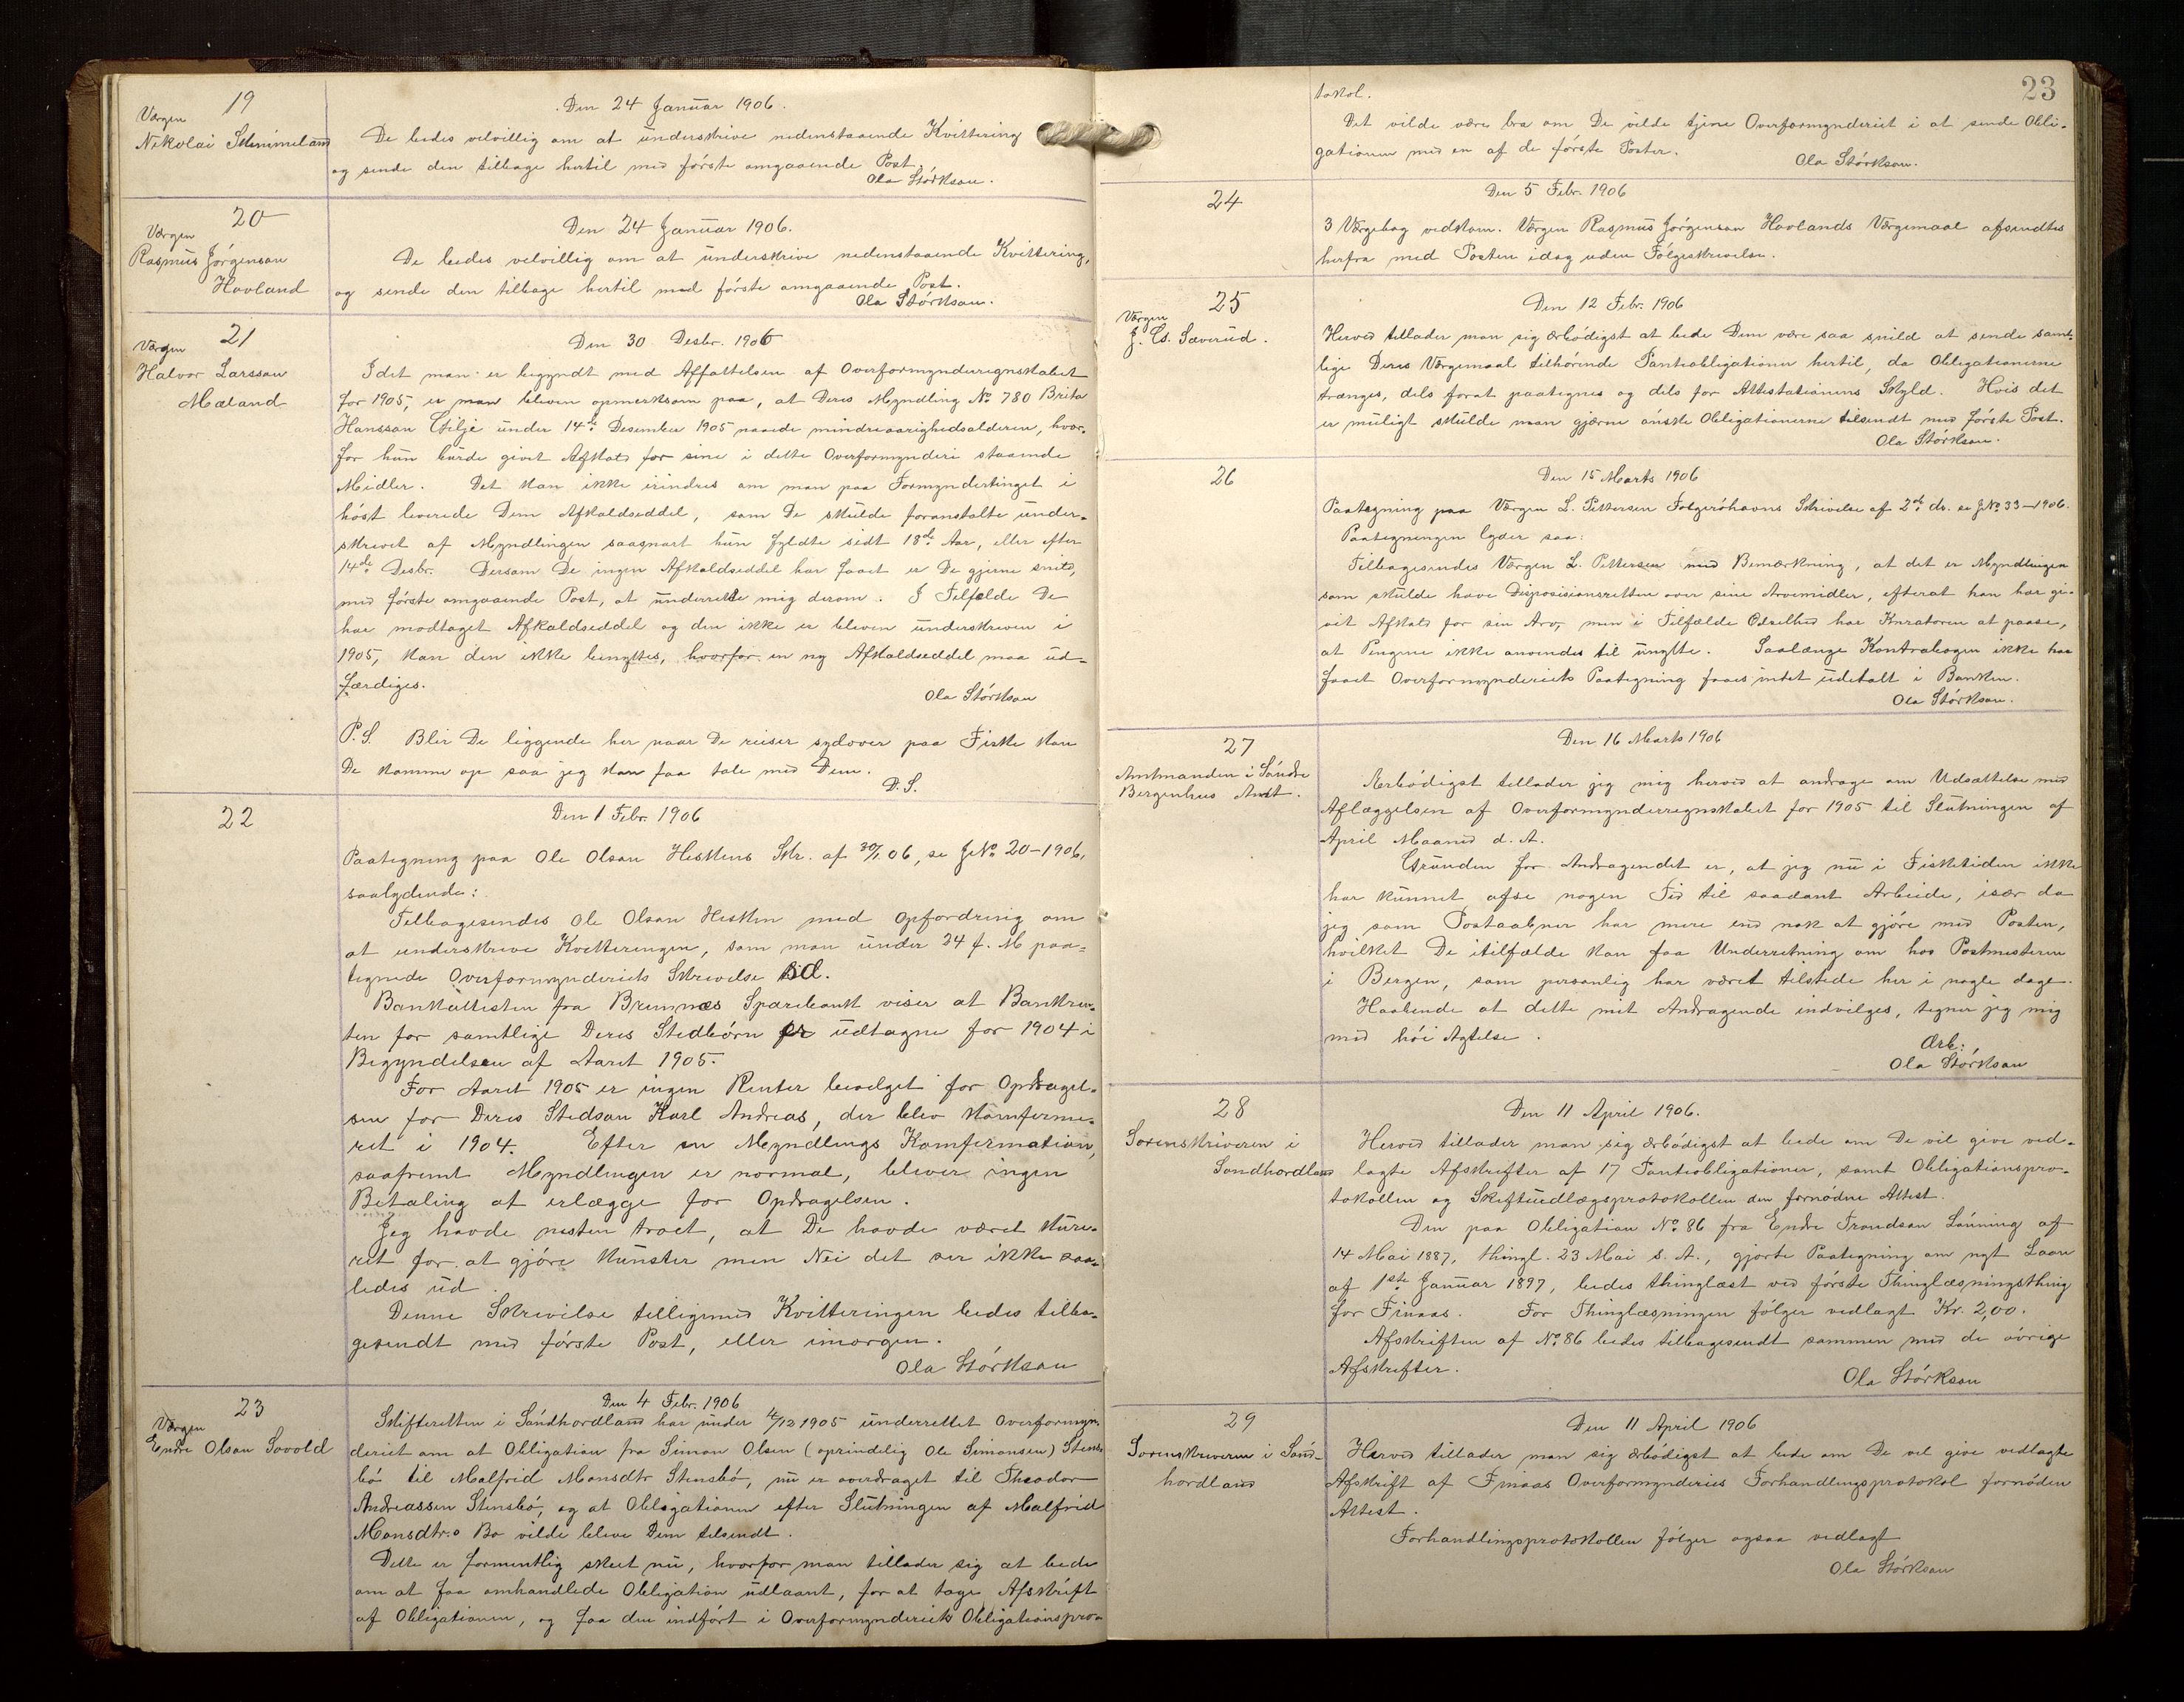 19
Værgen
Nikolai Stenimeland
Den 24 Januar 1906.
De bedes velvillig om at underskrive nedenstaaende Kvittering
og sende den tilbage hertil med første omgaaende Post.
Ola Størkson.
20
Værgen
Rasmus Jørgenson
Hovland
Den 24 Januar 1906.
De bedes velvillig om at underskrive nedenstaaende Kvittering,
og sende den tilbage hertil med første omgaaende Post.
Ola Størkson.
21
Værgen
Halvor Larsson
Mæland
Den 30 Desbr. 1906
Idet man er begyndt med Affattelsen af Overformynderregnskabet
for 1905, er man bleven opmerksom paa, at Deres Myndling No 780 Brita
Hansson Gilje under 14de Desember 1905 naaede mindreaarighedsalderen, hvor-
for hun burde givet Afkald for sine i dette Overformynderi staaende
Midler. Det kan ikke erindres om man paa Formyndertinget i
høst leverede Dem Afkaldseddel, som De skulde foranstalte under-
skrevet af Myndlingen saasnart hun fyldte sidt 18de Aar, eller efter
14de Desbr. Dersom De ingen Afkaldseddel har faaet er De gjerne snild,
med første omgaaende Post, at underrette mig derom. I Tilfælde De
har modtaget Afkaldseddel og den ikke er bleven underskreven i
1905, kan den ikke benyttes, hvorfor en ny Afkaldseddel maa ud-
færdiges.
Ola Størkson
P.S. Blir De liggende her naar De reiser sydover paa Fiske kan
De komme op saa jeg kan faa tale med Dem.
D.S.
22
Den 1 Febr. 1906
Paategning paa Ole Olson Heskens Skr. af 30/1 06, se J.No. 20-1906,
saalydende:
Tilbagesendes Ole Olson Hesken med Opfordring om
at underskrive Kvitteringen, som man under 24 f. M paa-
tegnede Overformynderiets Skrivelse bid.
Bankattesten fra Bremnæs Sparebank viser at Bankren-
ten for samtlige Deres Stedbørn er udtagne for 1904 i
Begyndelsen af Aaret 1905.
For Aaret 1905 er ingen Renter bevilget for Opdragel-
sen for Deres Stedson Karl Andreas, der blev komferme-
ret i 1904. Efter en Myndlings Komfermation,
saafremt Myndlingen er normal, bliver ingen
Betaling at erlægge for Opdragelsen.
Jeg havde nesten troet, at De havde været kure-
ret for at gjøre Kunster, men Nei det ser ikke saa-
ledes ud.
Denne Skrivelse tilligemed Kvitteringen bedes tilba-
gesendt med første Post, eller imorgen.
Ola Størkson
23
Værgen
Endre Olson Sovold
Den 4 Febr. 1906
Skifteretten i Søndhordland har under 4/12 1905 underrettet Overformyn-
deriet om at Obligation fra Simon Olsen (oprindelig Ole Simonsen) Stens-
bø til Malfrid Monsdtr Stensbø, nu er overdraget til Theodor
Andreassen Stensbø, og at Obligationen efter Slutningen af Malfrid
Monsdtr.s Bo vilde bleve Dem tilsendt.
Dette er formentlig skeet nu, hvorfor man tillader sig at bede
om at faa omhandlede Obligation udlaant, for at tage Afskrift
af Obligationen, og faa den indført i Overformynderiets Obligationspro-
23
tokol.
Det vilde være bra om De vilde tjene Overformynderiet i at sende Obli-
gationen med en af de første Poster.
Ola Størkson.
24
Den 5 Febr. 1906
3 Værgebog vedkom. Værgen Rasmus Jørgenson Hovlands Værgemaal afsendtes
herfra med Posten idag uden Følgeskrivelse.
25
Værgen
J. Cs. Sæverud.
Den 12 Febr. 1906
Herved tillader man sig ærbødigst at bede Dem være saa snild at sende samt-
lige Deres Værgemaal tilhørende Panteobligationer hertil, da Obligationerne
trænges, dels forat paategnes og dels for Attestationens Skyld. Hvis det
er muligt skulde man gjærne ønske Obligationerne tilsendt med første Post.
Ola Størkson.
26
Den 15 Marts 1906
Paategning paa Værgen L. Pettersen Folgerøhavns Skrivelse af 2de ds. se J.No. 33-1906.
Paategningen lyder saa:
Tilbagesendes Værgen L. Pettersen med Bemærkning, at det er Myndlingen
som skulde have Disposisionsretten over sine Arvemidler, efterat han har gi-
vet Afkald for sin Arv, men i Tilfælde Ødselhed har Kuratoren at paase,
at Pengene ikke anvendes til unytte. Saalænge Kontrabogen ikke har
faaet Overformynderiets Paategning faaes intet udbetalt i Banken.
Ola Størkson.
27
Amtmanden i Søndre
Bergenhus Amt.
Den 16 Marts 1906
Ærbødigst tillader jeg mig herved at andrage om Udsættelse med
Aflæggelsen af Overformynderregnskabet for 1905 til Slutningen af
April Maaned d. A.
Grunden for Andragendet er, at jeg nu i Fisketiden ikke
har kunnet afse nogen Tid til saadant Arbeide, især da
jeg som Postaabner har mere end nok at gjøre med Posten,
hvilket De itilfælde kan faa Underretning om hos Postmesteren
i Bergen, som personlig har været tilstede her i nogle dage.
Haabende at dette mit Andragende indvilges, tegner jeg mig
med høi Agtelse.
Ærb:
Ola Størkson
28
Sorenskriveren i
Søndhordland
Den 11 April 1906.
Herved tillader man sig ærbødigst at bede om De vil give ved-
lagte Afskrifter af 17 Panteobligationer, samt Obligationspro-
tokollen og Skifteudlægsprotokollen den fornødne Attest.
Den paa Obligation No. 86 fra Endre Trondson Lønning af
14 Mai 1887, thingl. 23 Mai s. A., gjorte Paategning om nyt Laan
af 1ste Januar 1897, bedes thinglæst ved første Thinglæsningsthing
for Finaas. For Thinglæsningen følger vedlagt Kr. 2,00.
Afskriften af No. 86 bedes tilbagesendt sammen med de øvrige
Afskrifter.
Ola Størkson
29
Sorenskriveren i Sønd-
hordland
Den 11 April 1906
Herved tillader man sig ærbødigst at bede om De vil give vedlagte
Afskrift af Finaas Overformynderies Forhandlingsprotokol fornøden
Attest.
Forhandlingsprotokollen følger ogsaa vedlagt
Ola Størkson